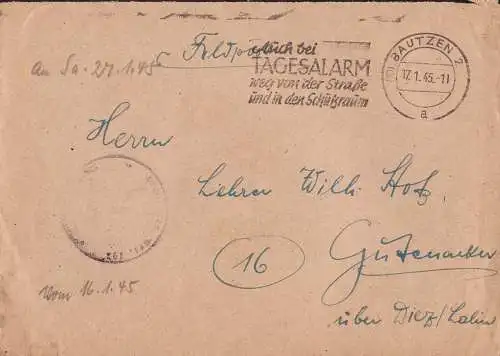 Feldpost
Auch bei
TAGESALARM
weg von der Straße
und in den Schutzraum
BAUTZEN 2
17.1.45.-11
a
an Sa. 27.1.45
Herrn
Lehrer Wilh. Hotz
16
Gutenacker
über Diez/Lahn
vom 16.1.45